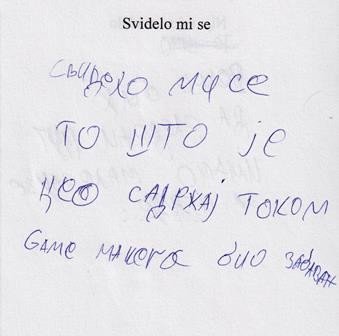 Svidelo mi se
СВИДЕЛО МИ СЕ
ТО ШТО је
ЦЕО САДРЖАЈ ТОКОМ
GAME МАКОГА БИО ЗАБАВАН